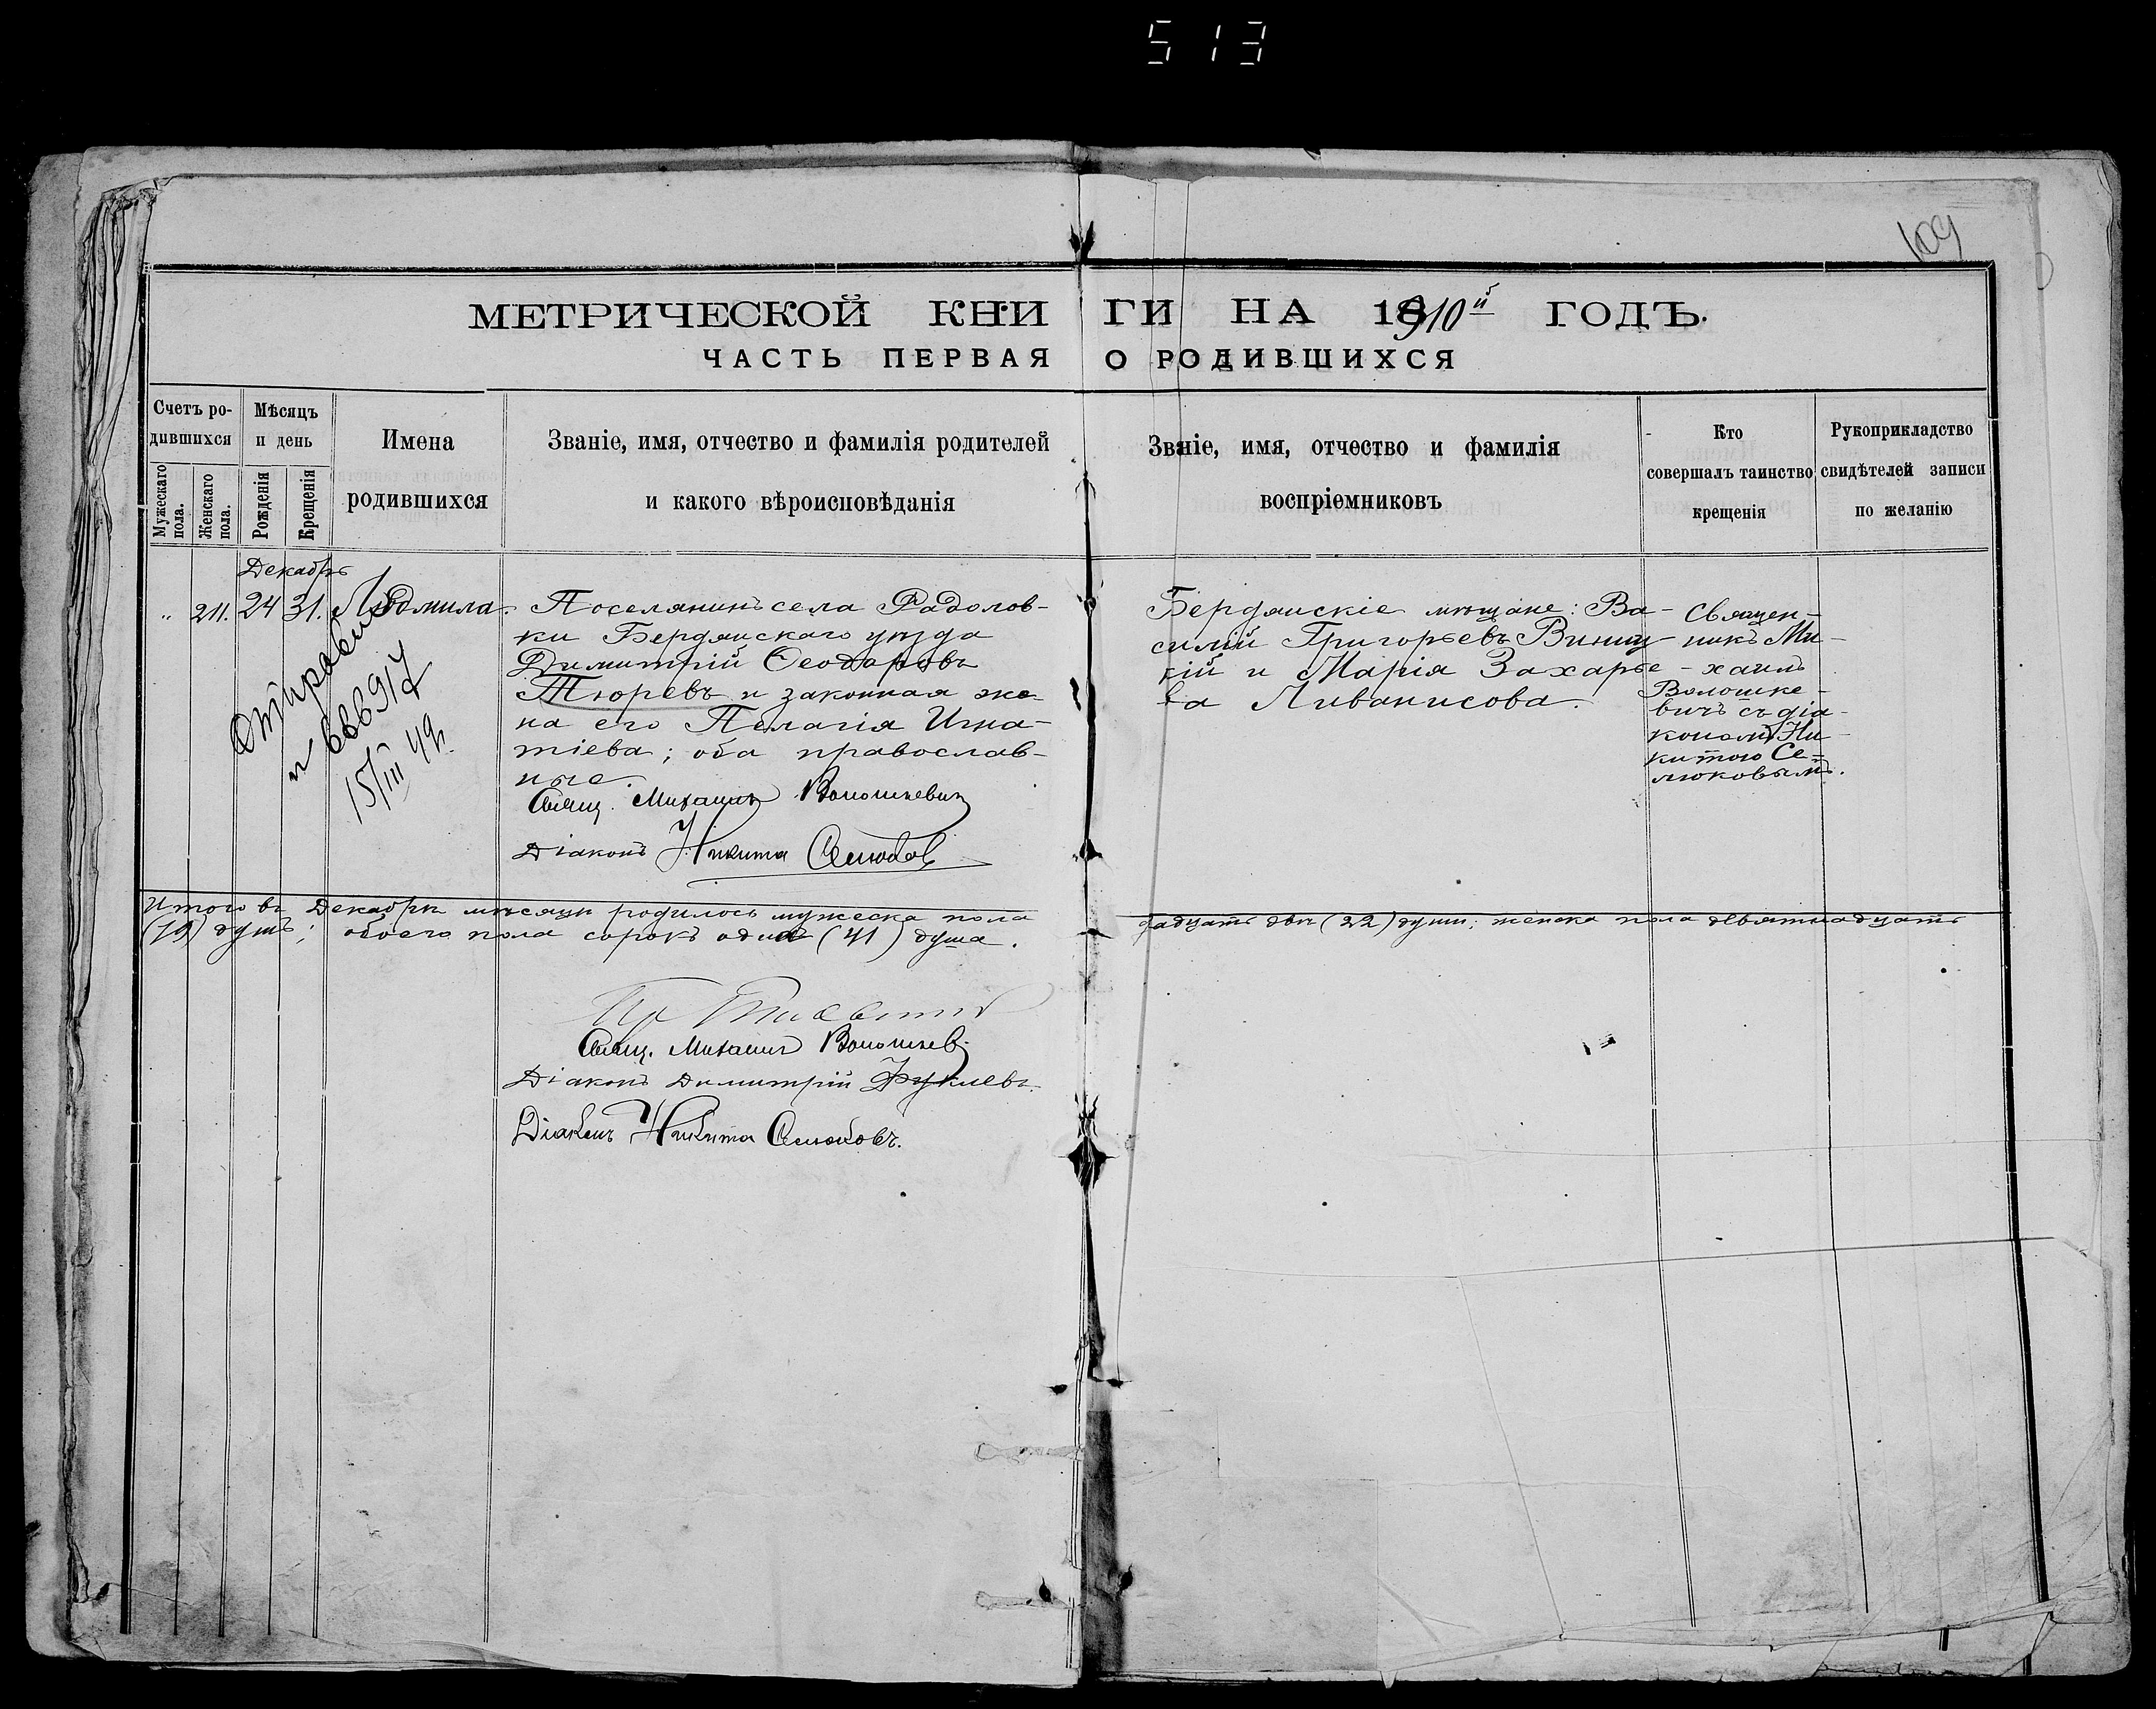 513
109
МЕТРИЧЕСКОЙ КНИГИ НА 1910й ГОДЪ.
ЧАСТЬ ПЕРВАЯ О РОДИВШИХСЯ
Счетъ ро-
дившихся
Мужескаго пола.
Женскаго пола.
Мѣсяцъ
и день
Рожденія
Крещенія
Имена
родившихся
Званіе, имя, отчество и фамилія родителей
и какого вѣроисповѣданія
Званіе, имя, отчество и фамилія
воспріемниковъ
Кто
совершалъ таинство
крещенія
Рукоприкладство
свидѣтелей записи
по желанію
Декабрь
„ 211. 24 31. Людмила.
Поселянинъ села Радолов-
ки Бердянскаго уѣзда
Димитрій Ѳеодоровъ
Тюревъ и законная же-
на его Пелагія Игна-
тіева; оба православ-
ные.
Свящ. Михаилъ Волошкевич
Діаконъ Никита Селюков
Бердянскіе мѣщане: Ва-
силій Григорьевъ Виниц-
кій и Марія Захарье-
ва Ливанисова.
Священ-
никъ Ми-
хаилъ
Волошке-
вичъ съ діа-
кономъ Ни-
китою Се-
люковымъ.
15/III 49г.
Итого въ Декабрѣ мѣсяцѣ родилось мужеска пола двадцать двѣ (22) души; женска пола девятнадцать
(19) душъ; обоего пола сорокъ одна (41) душа.
Свящ. Михаилъ Волошкев.
Діаконъ Димитрій
Діаконъ Никита Селюковъ.